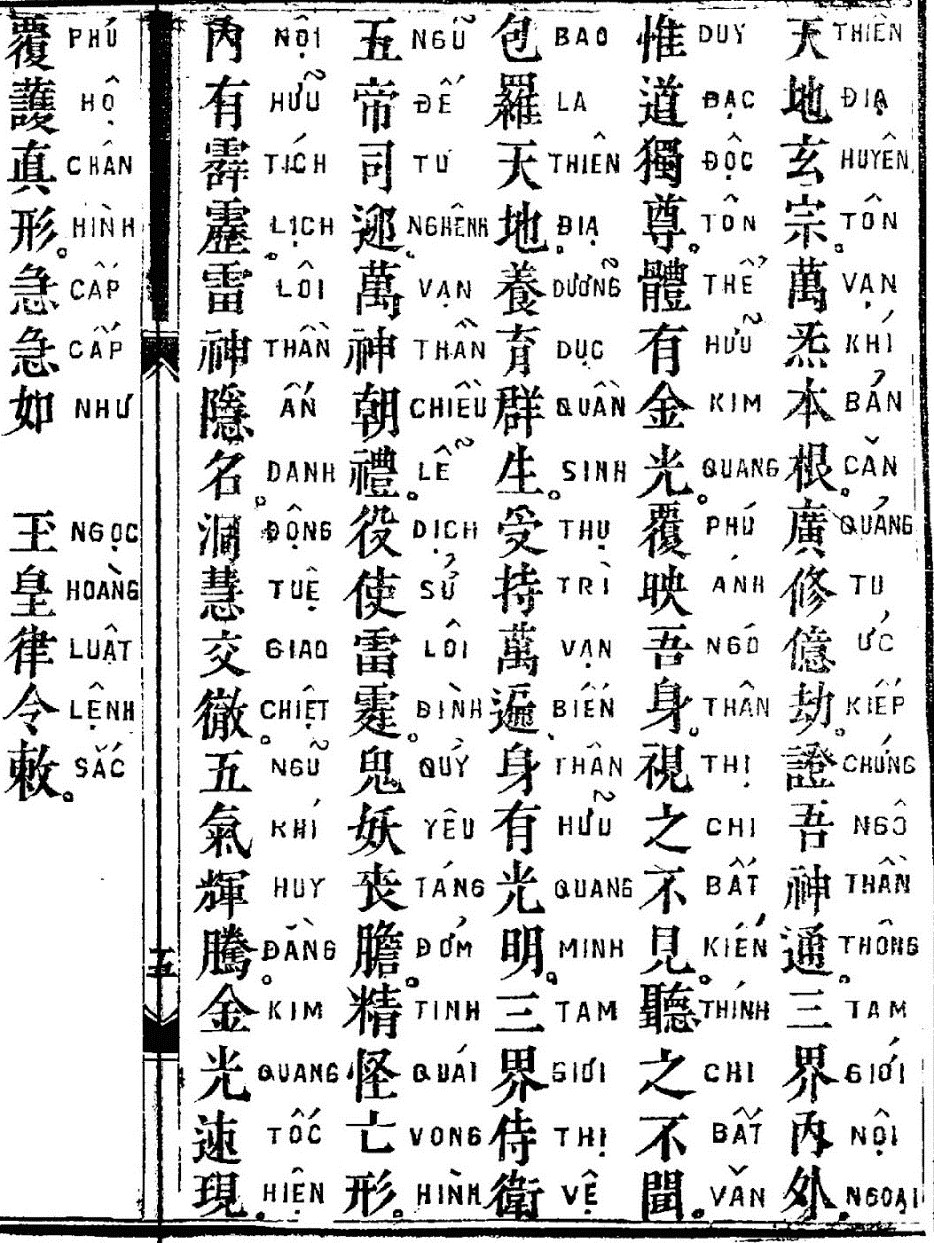 天地玄宗。萬炁本根。廣修億劫。證吾神通。三界内外。
THIÊN ĐỊA HUYÊN TÔN VẠN KHÍ BẢN CĂN QUẢNG TU ỨC KIẾP CHỨNG NGÔ THẦN THÔNG TAM GIỚI NỘI NGOẠI
惟道獨尊。體有金光。覆映吾身。視之不見。聽之不聞。
DUY ĐẠC ĐỘC TÔN THỂ HỮU KIM QUANG PHÚ ÁNH NGÔ THÂN THỊ CHI BẤT KIẾN THÍNH CHI BẤT VĂN
包羅天地。養育群生。受持萬遍。身有光明。三界侍衛
BAO LA THIÊN ĐỊA DƯỠNG DỤC QUẦN SINH THỤ TRÌ VẠN BIẾN THÂN HỮU QUANG MINH TAM GIỚI THỊ VỆ
五帝司迎。萬神朝禮。役使雷霆。鬼妖丧膽。精怪亡形。
NGŨ ĐẾ TƯ NGHÊNH VẠN THẦN CHIỀU LỄ DỊCH SỬ LÔI ĐÌNH QUỶ YÊU TÁNG ĐỞM TINH QUÁI VONG HÌNH
内有霹靂。雷神隱名。洞慧交徹。五氣輝騰。金光速現。
NỘI HỮU TÍCH LỊCH LÔI THẦN ẨN DANH ĐỘNG TUỆ GIAO CHIỆT NGŨ KHÍ HUY ĐẰNG KIM QUANG TỐC HIỆN
十五
覆護真形。急急如 玉皇律令敕。
PHÚ HỘ CHÂN HÌNH CẤP CẤP NHƯ NGỌC HOÀNG LUẬT LỆNH SẮC